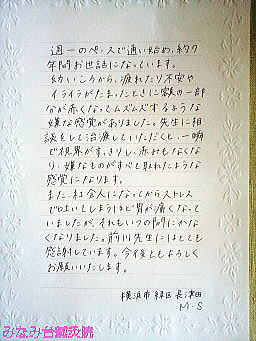 週一のペースで通い始め、約7
年間お世話になっています。
幼いころから、疲れたり不安や
イライラがたまったときに家の一部
分が赤くなってムズムズするような
嫌な感覚がありました。先生に相
談をして治療していただくと、一瞬
で視界がすっきりし、赤みもなくな
り、嫌なものがすべて取れたような
感覚になります。
また、社会人になってからストレス
で吐いてしまうほど胃が痛くなって
いましたが、それもいつの間にかな
くなりました。前川先生にはとても
感謝しています。今後ともよろしく
お願いいたします。
横浜市緑区長津田
M・S
みなみ台鍼灸院